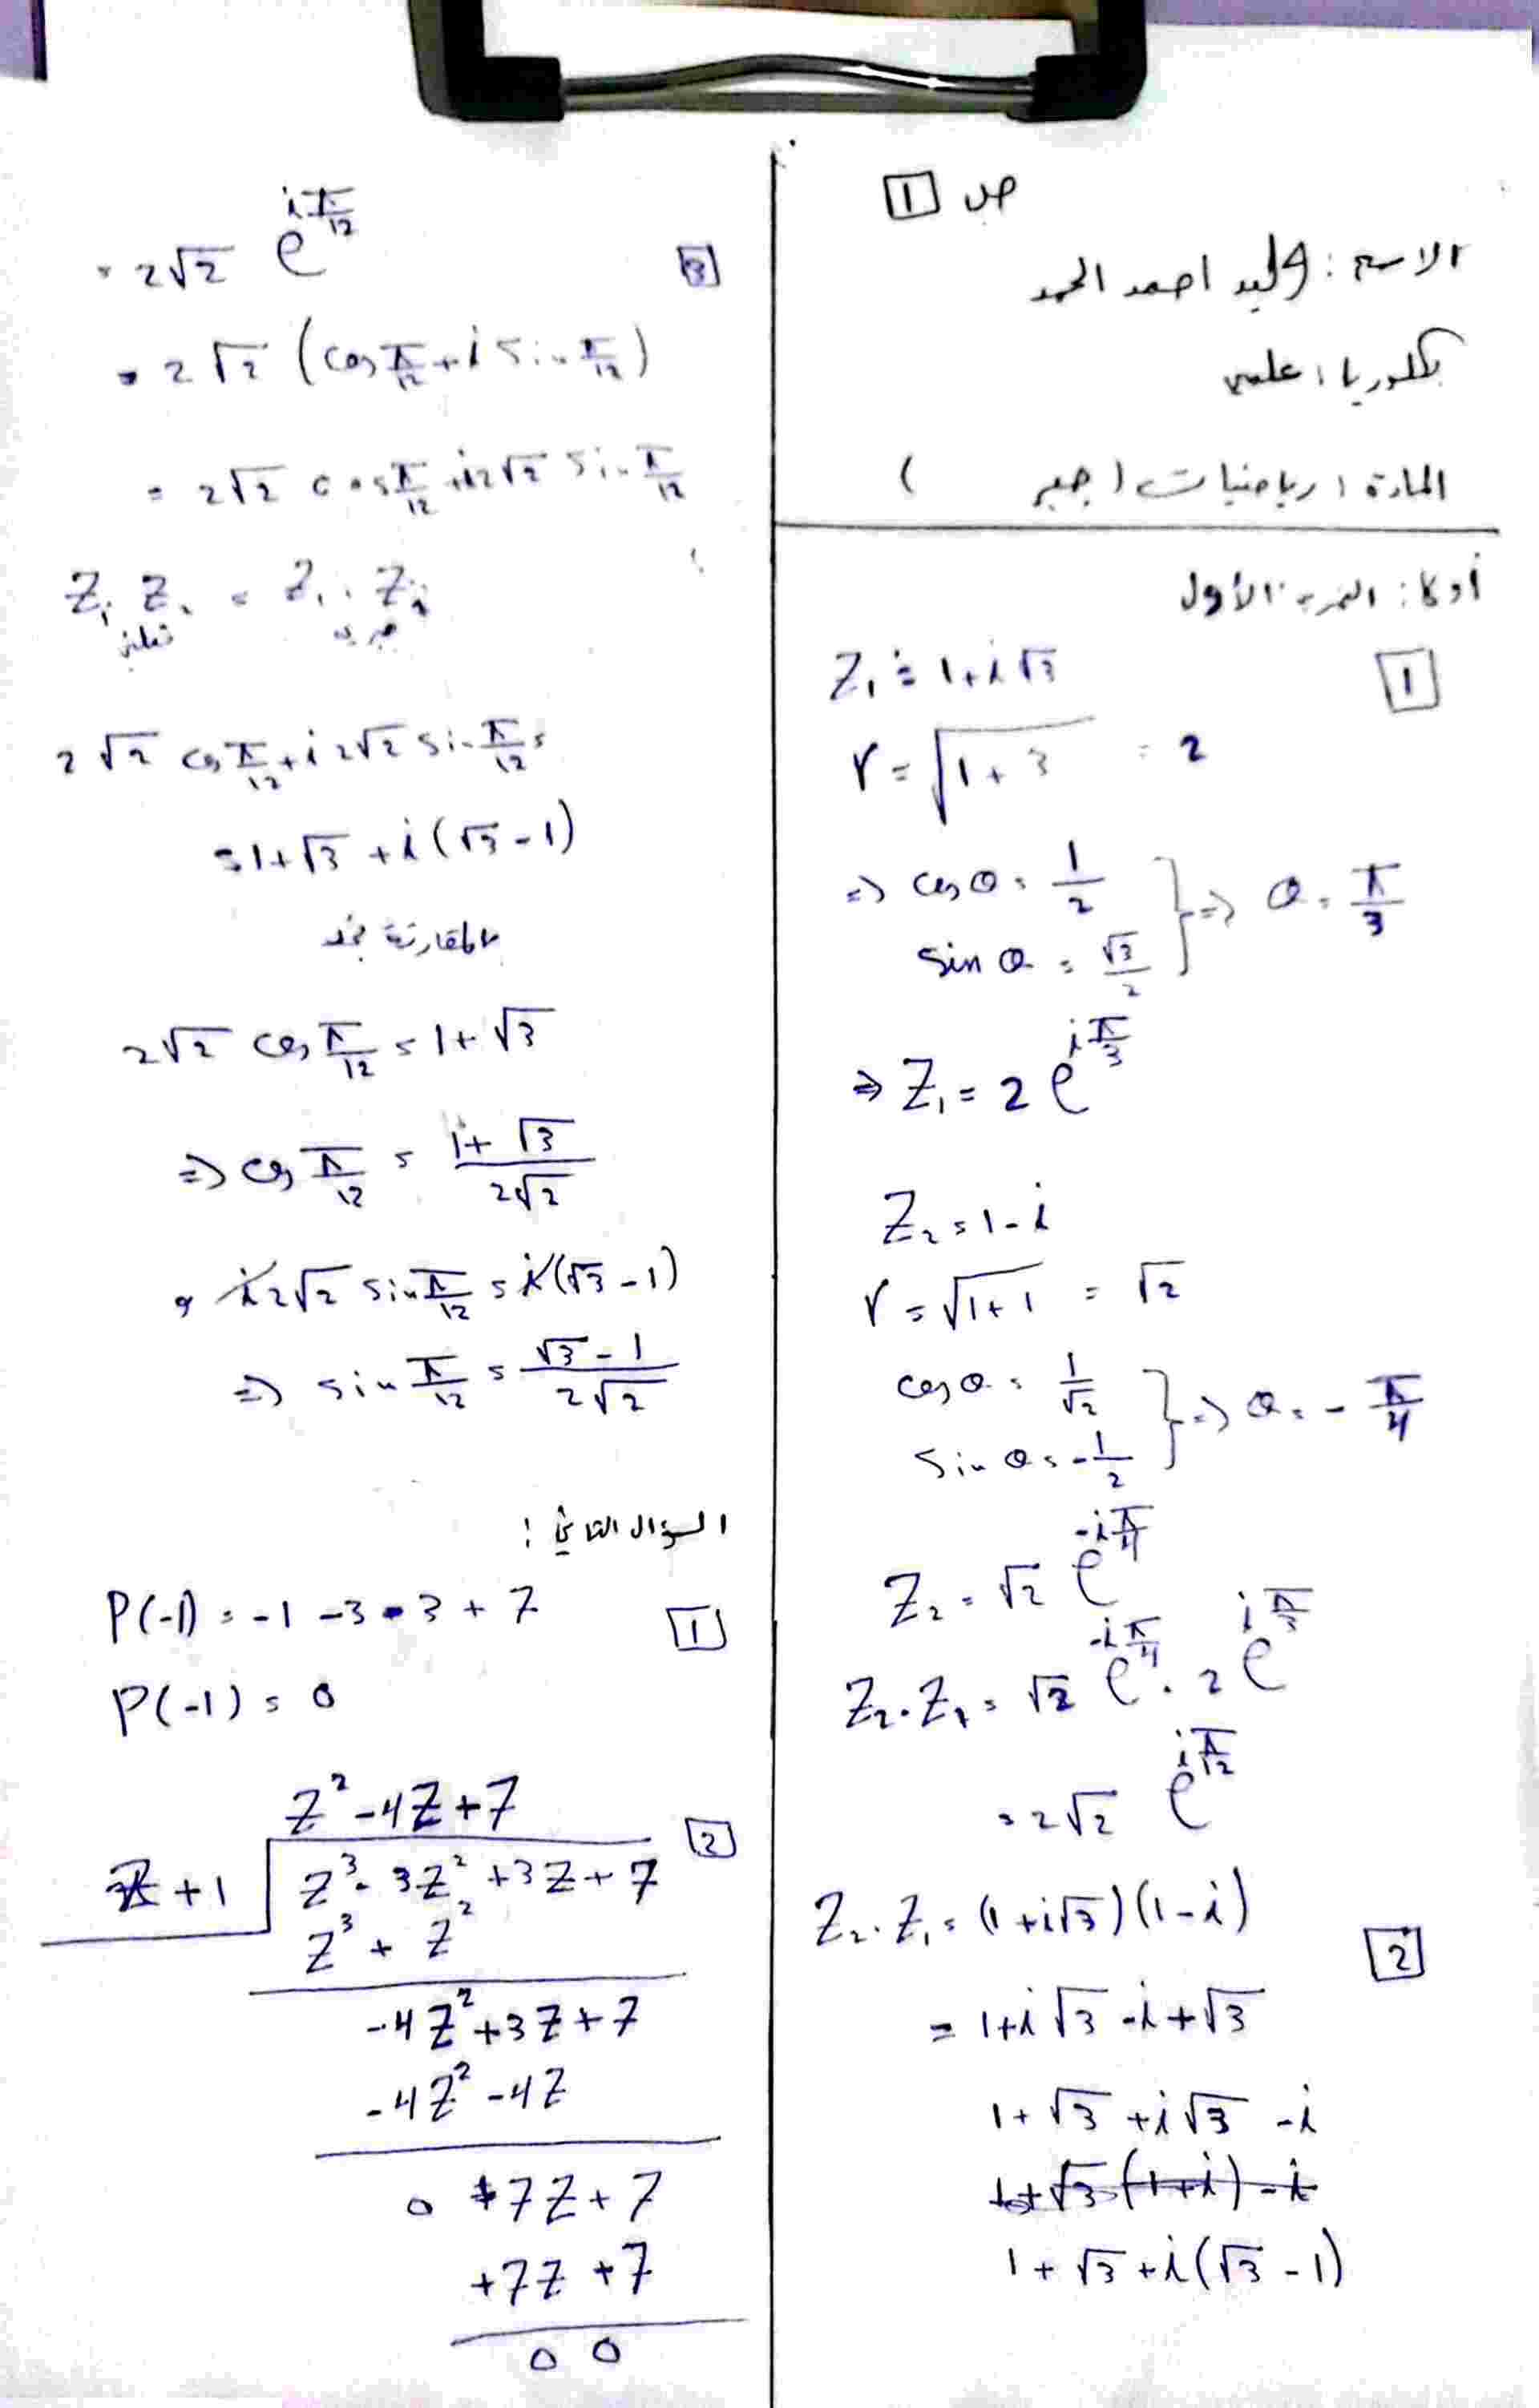 ص 1
الاسم : وليد احمد الحمد
بكلوريا : علمي
المادة : رياضيات ( جبر )
أولا : التمرين الأول
1
Z₁ = 1+i√3
r = √(1+3) = 2
=> cos θ = 1/2
sin θ = √3/2 } => θ = π/3
=> Z₁ = 2 e^(iπ/3)
Z₂ = 1-i
r = √(1+1) = √2
cos θ = 1/√2
sin θ = -1/2 } => θ = -π/4
Z₂ = √2 e^(-iπ/4)
Z₂.Z₁ = √2 e^(-iπ/4) . 2 e^(iπ/3)
= 2√2 e^(iπ/12)
2
Z₂.Z₁ = (1+i√3)(1-i)
= 1+i√3 -i+√3
1+√3 +i√3 -i
1+√3 (1+i) -i
1+√3 +i(√3 -1)
3
= 2√2 e^(iπ/12)
= 2√2 (cos π/12 + i sin π/12)
= 2√2 cos π/12 + i2√2 sin π/12
Z₁ Z₂ = Z₁ . Z₂
2√2 cos π/12 + i 2√2 sin π/12 =
= 1+√3 +i(√3 -1)
بالمقارنة نجد
2√2 cos π/12 = 1+√3
=> cos π/12 = (1+√3)/(2√2)
و i2√2 sin π/12 = i(√3 -1)
=> sin π/12 = (√3 -1)/(2√2)
السؤال الثاني :
1
P(-1) = -1 -3 -3 + 7
P(-1) = 0
2
Z² -4Z +7
Z +1
Z³ - 3Z² +3Z + 7
Z³ + Z²
-4Z² +3Z +7
-4Z² -4Z
0 +7Z + 7
+7Z +7
0 0